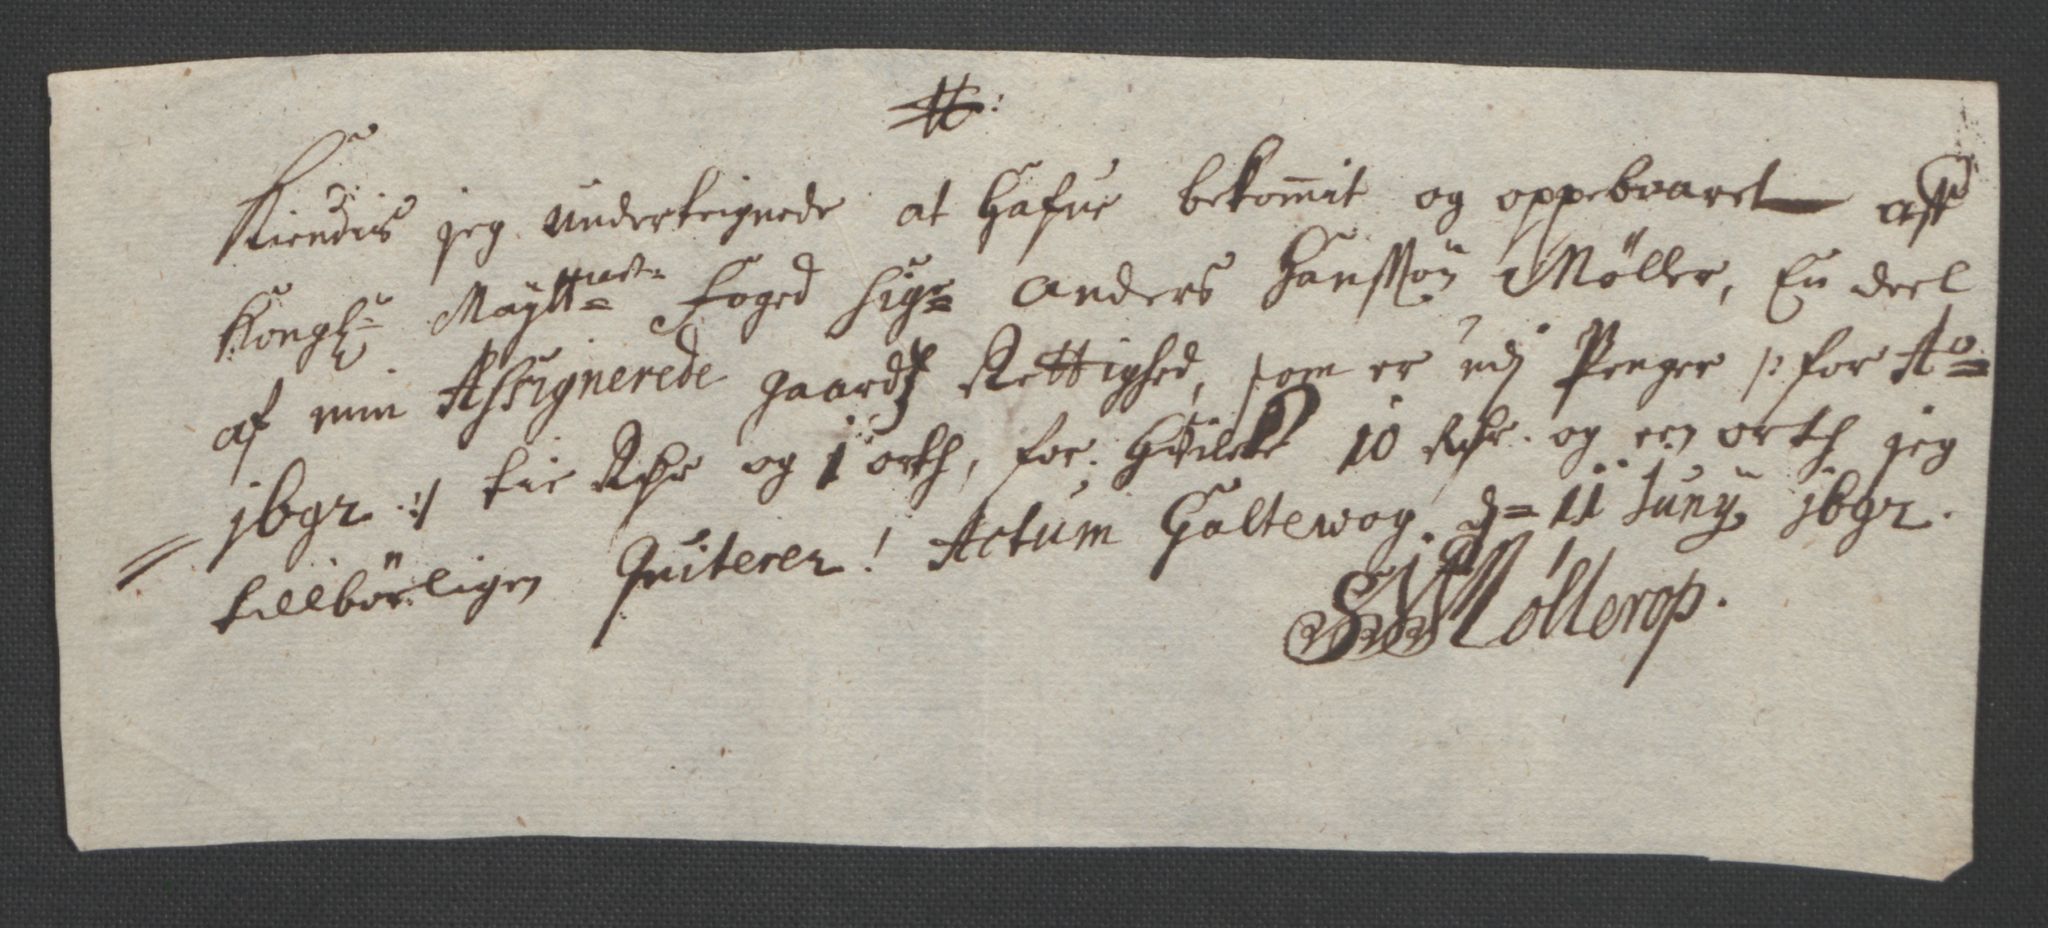 Kiendis jeg underteignede at Hafue bekommit og oppebaaret aff
Kongl: Maytt: Foged Sigr Anders Hanssøn Møller, En deel
af min Assignerede gaards Rettighed, som er udj Penger /: for Ao
j692 :/ tie Rdr og 1 orth, for Huilcke 10 Rdr. og een orth jeg
tilbörligen Quiterer! Actum Galtewog. d= 11 Juny j692.
Möllerop.